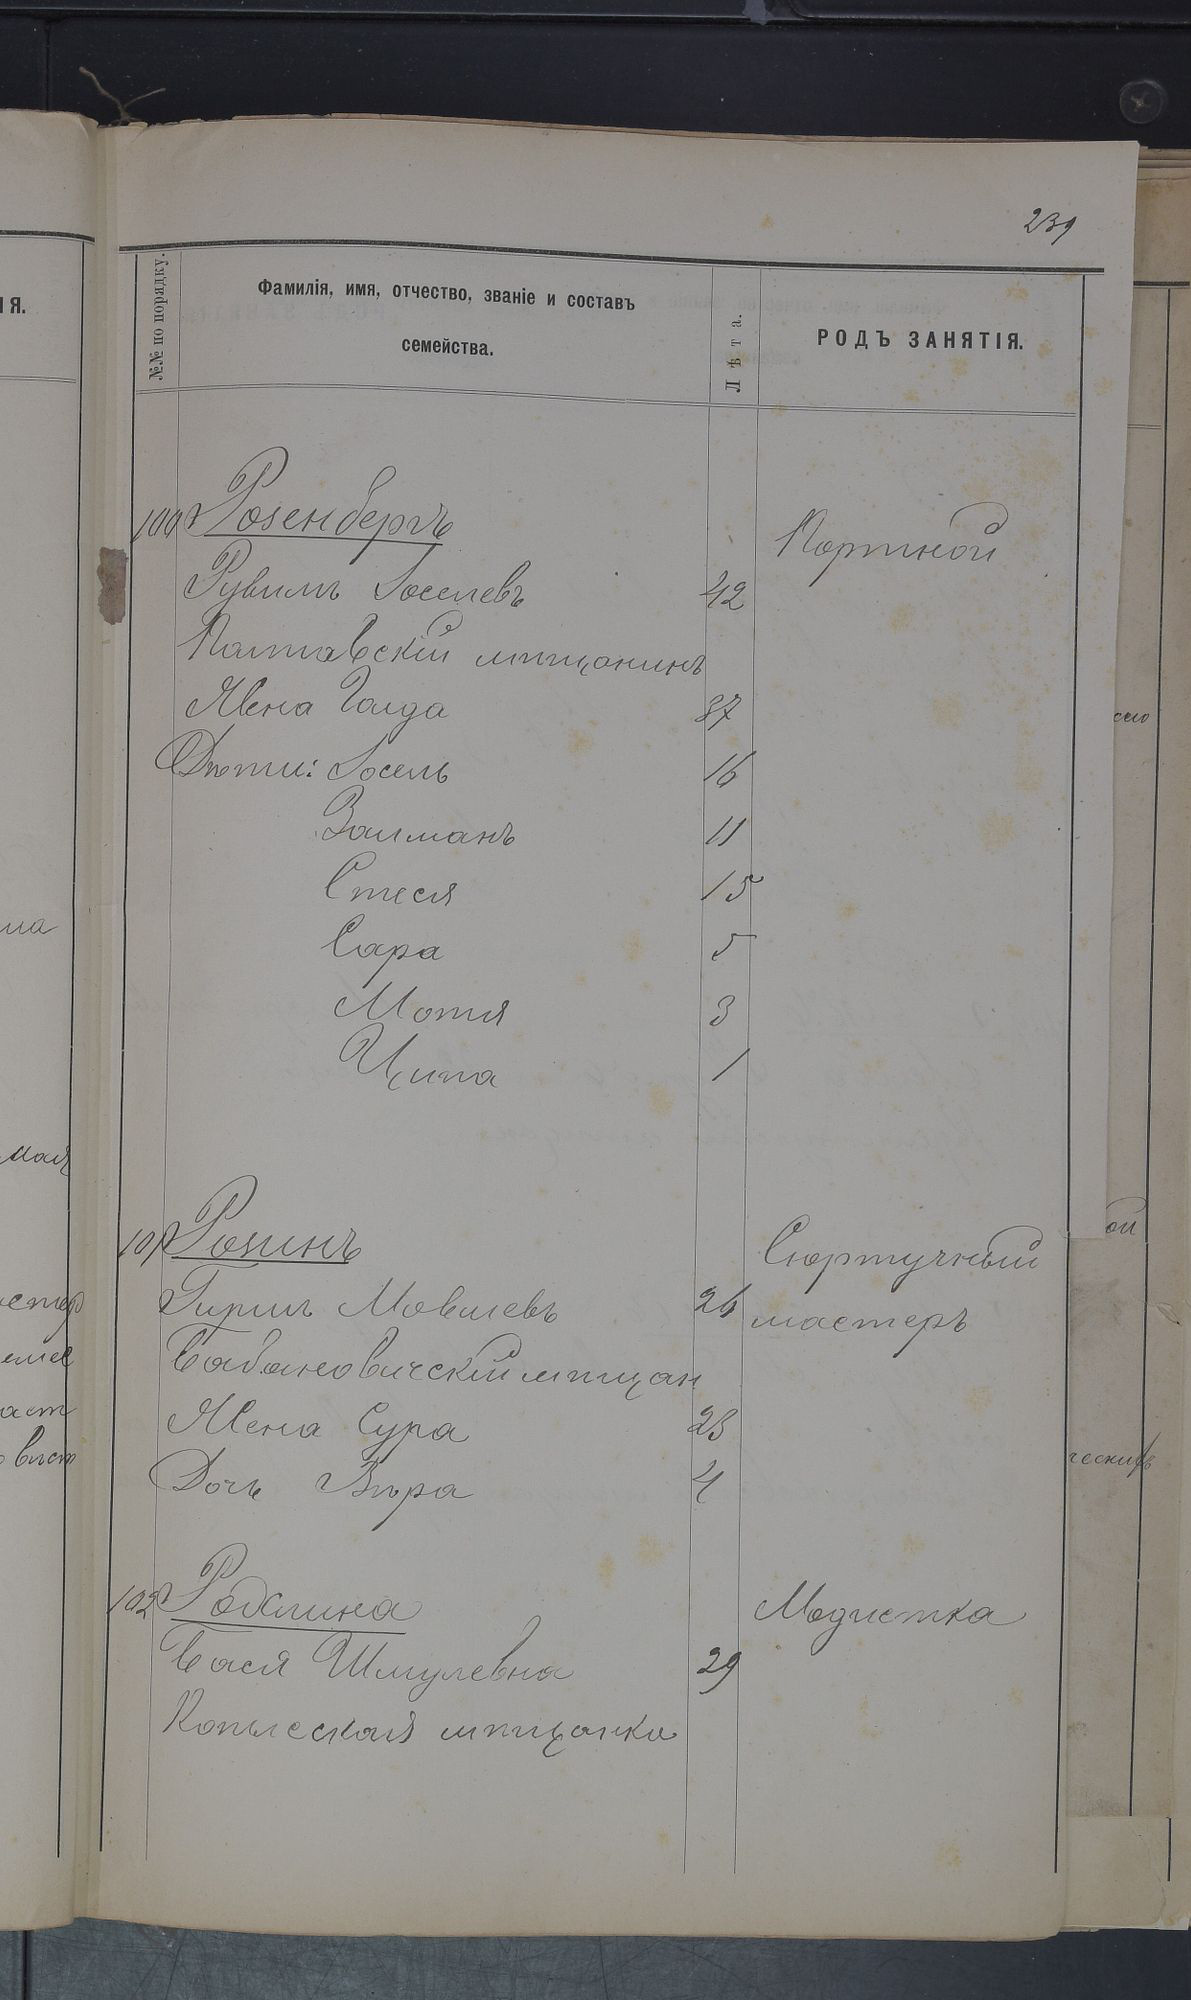 239
№№ по порядку.
Фамилія, имя, отчество, званіе и составъ
семейства.
Лѣта.
РОДЪ ЗАНЯТІЯ.
100 Розенбергъ
Портной
Рувимъ Іоселевъ 42
Полтавскій мѣщанинъ
Жена Голда 37
Дѣти: Іосель 16
Залманъ 11
Стеся 15
Сара 5
Мотя 3
Ципа 1
101 Розинъ Сюртучный
Гиршъ Мовшевъ 26 мастеръ
Бабиновичскій мѣщан
Жена Сура 23
Дочь Вѣра 4
102 Родкина Модистка
Бася Шмулевна 29
Копысская мѣщанка